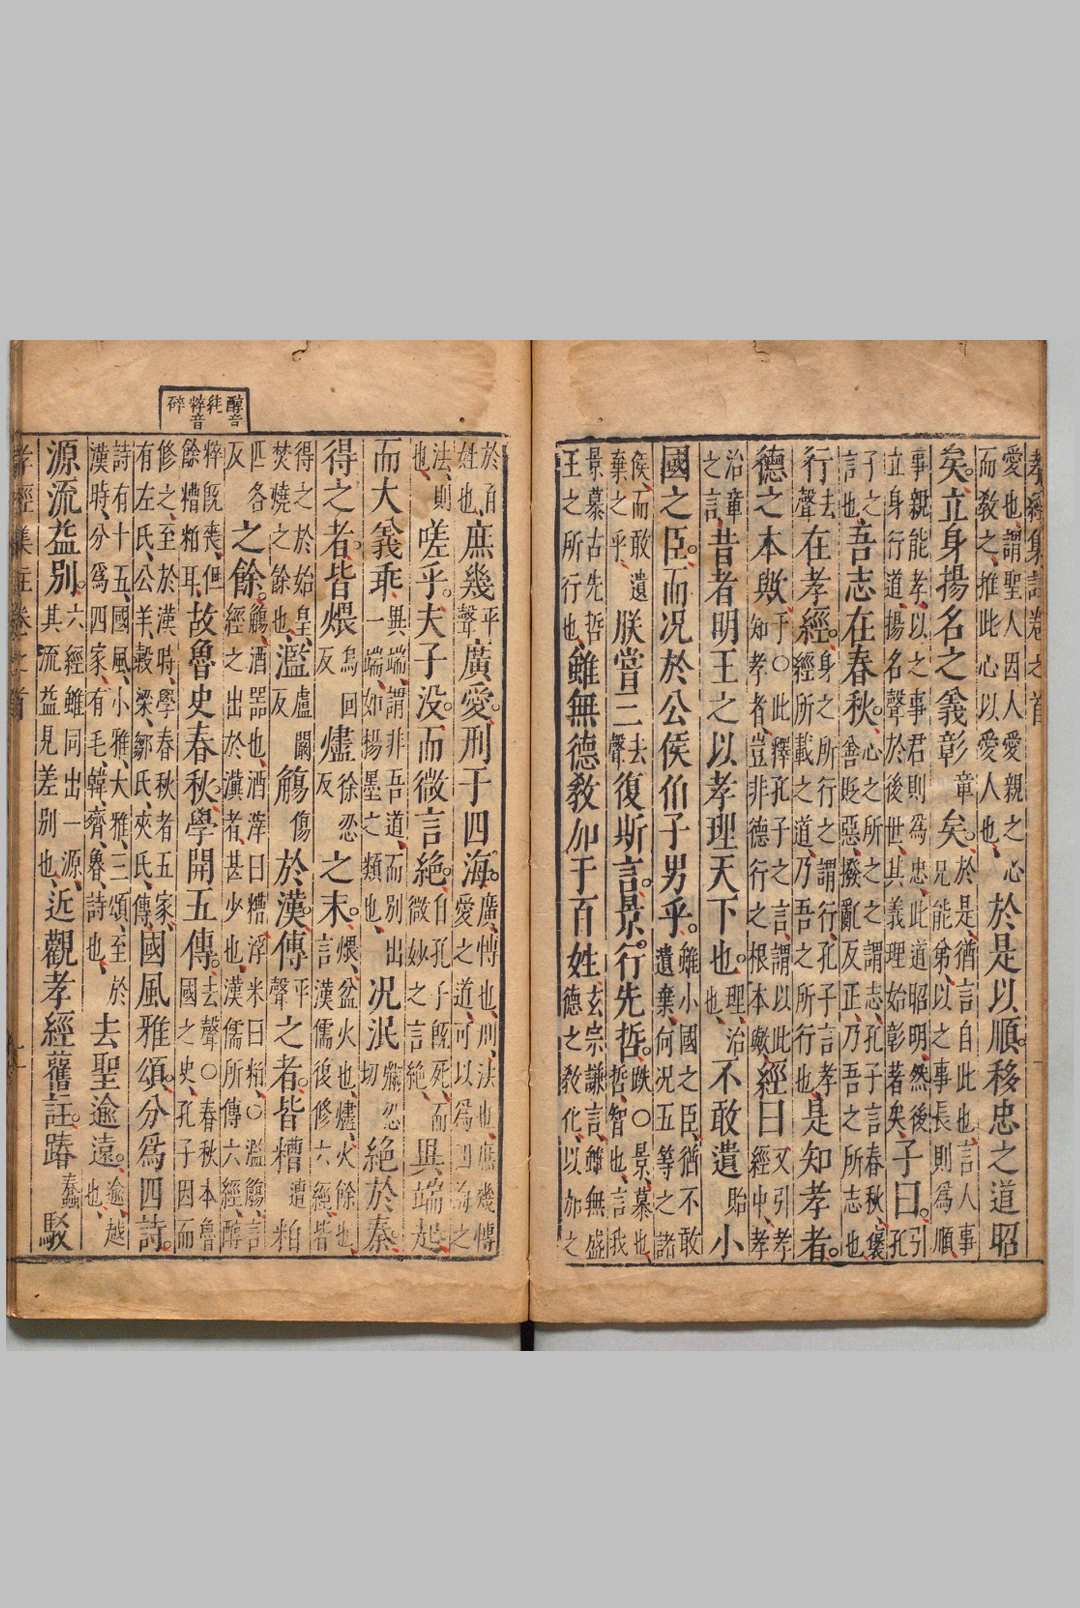 孝經集註卷之首
愛也謂聖人因人愛親之心
而教之推此心以愛人也
於是以順移忠之道昭
矣立身揚名之義彰
章
矣
於是猶言自此也言人事
兄能弟以之事長則為順
事親能孝以之事君則為忠此道昭明然後
立身行道揚名聲於後世其義理始彰著矣
子曰
引
孔
子之
言也
吾志在春秋
心之所之之謂志孔子言春秋襃
舍貶惡撥亂反正乃吾之所志也
行
去
聲
在孝經
身之所行之謂行孔子言孝
經所載之道乃吾之所行也
是知孝者
德之本歟
于〇此釋孔子之言謂以此
知孝者豈非德行之根本歟
經曰
又引孝
經中孝
治章
之言
昔者明王之以孝理天下也
理治
也
不敢遺
貽
小
國之臣而况於公侯伯子男乎
雖小國之臣猶不敢
遺棄何况五等之諸
侯而敢遺
棄之乎
朕嘗三
去
聲
復斯言景行先哲
跌〇景慕也
哲智也言我
景慕古先哲
王之所行也
雖無德教加于百姓
玄宗謙言雖無盛
德之教化以加之
於百
姓也
庶幾
平
聲
廣愛刑于四海
廣博也刑法也庶幾博
愛之道可以為四海之
法則
也
嗟乎夫子没而微言絶
自孔子既死而
微妙之言絶
異端起
而大義乖
異端謂非吾道而别出
一端如楊墨之類也
况泯
彌忍
切
絶於秦
得之者皆煨
烏回
反
燼
徐忍
反
之末
煨盆火也燼火餘也
言漢儒復修六經皆
得之於始皇
焚燒之餘也
濫
盧闞
反
觴
傷
於漢傳
平
聲
之者皆糟
遭
粕
匹各
反
之餘
觴酒噐也酒滓曰糟浮米曰粕〇濫觴言
經之出於漢者甚少也漢儒所傳六經醇
粹既喪但
餘糟粕耳
故魯史春秋學開五傳
去聲〇春秋本魯
國之史孔子因而
修之至於漢時學春秋者五家
有左氏公羊穀梁鄒氏夾氏傳
國風雅頌分為四詩
詩有十五國風小雅大雅三頌至於
漢時分為四家有毛韓齊魯詩也
去聖逾遠
逾越
也
源流益别
六經雖同出一源
其流益見差别也
近觀孝經舊註踳
蠢
駁
孝經集註卷之首
醇音
純
粹音
碎